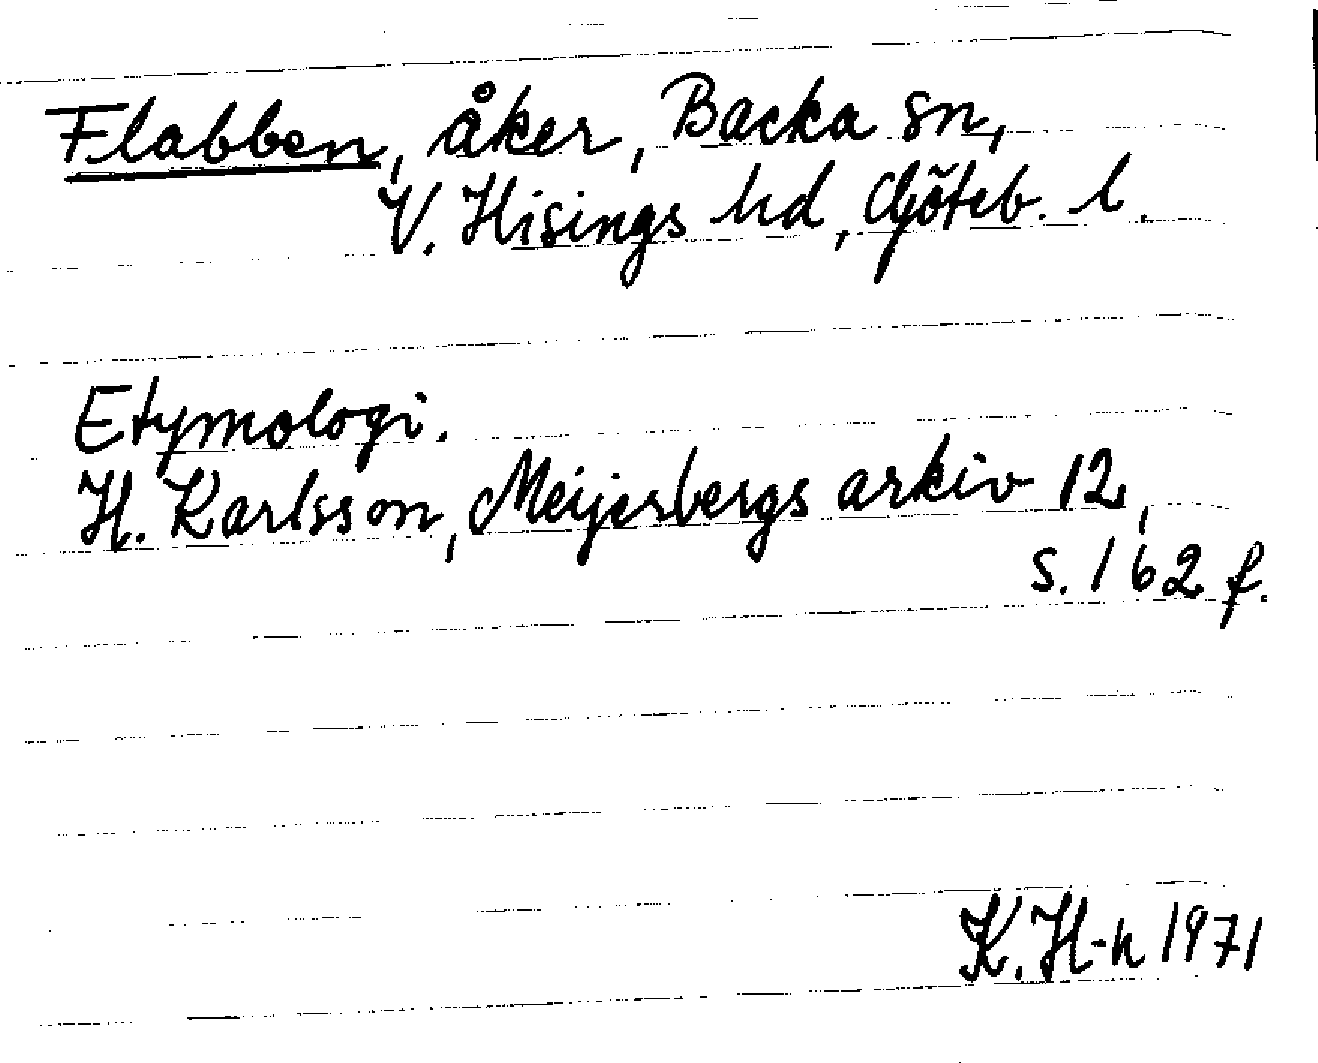 Flabben, åker, Backa sn,
V. Hisings hd, Göteb. l.
Etymologi.
H. Karlsson, Meijerbergs arkiv 12,
s. 162 f.
K. H-n 1971